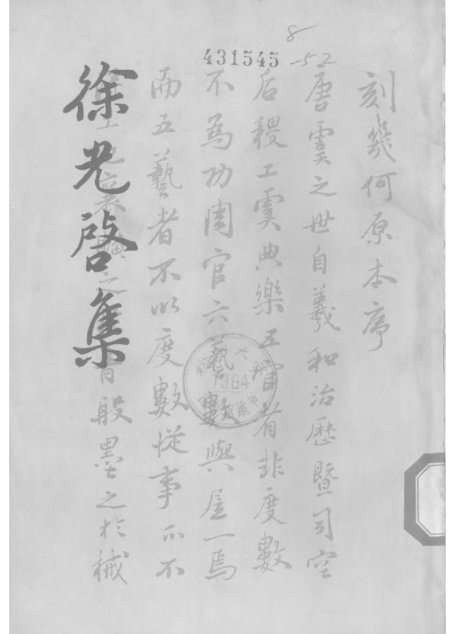 8
-52
431545
徐光啓集
刻幾何原本序
唐虞之世自羲和治歷暨司空
后稷工虞典樂五官者非度數
不為功周官六藝數與居一焉
而五藝者不以度數從事亦不
般墨之於械
1984